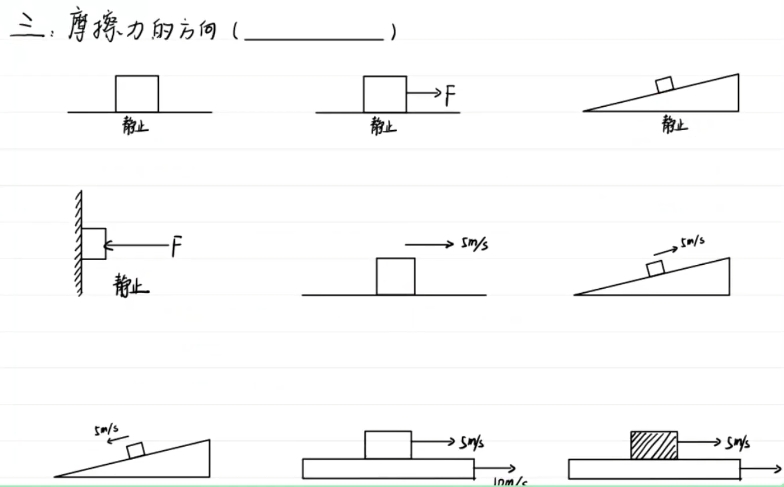 三.摩擦力的方向(__________)
F
静止
静止
静止
F
静止
5m/s
5m/s
5m/s
5m/s
10m/s
5m/s